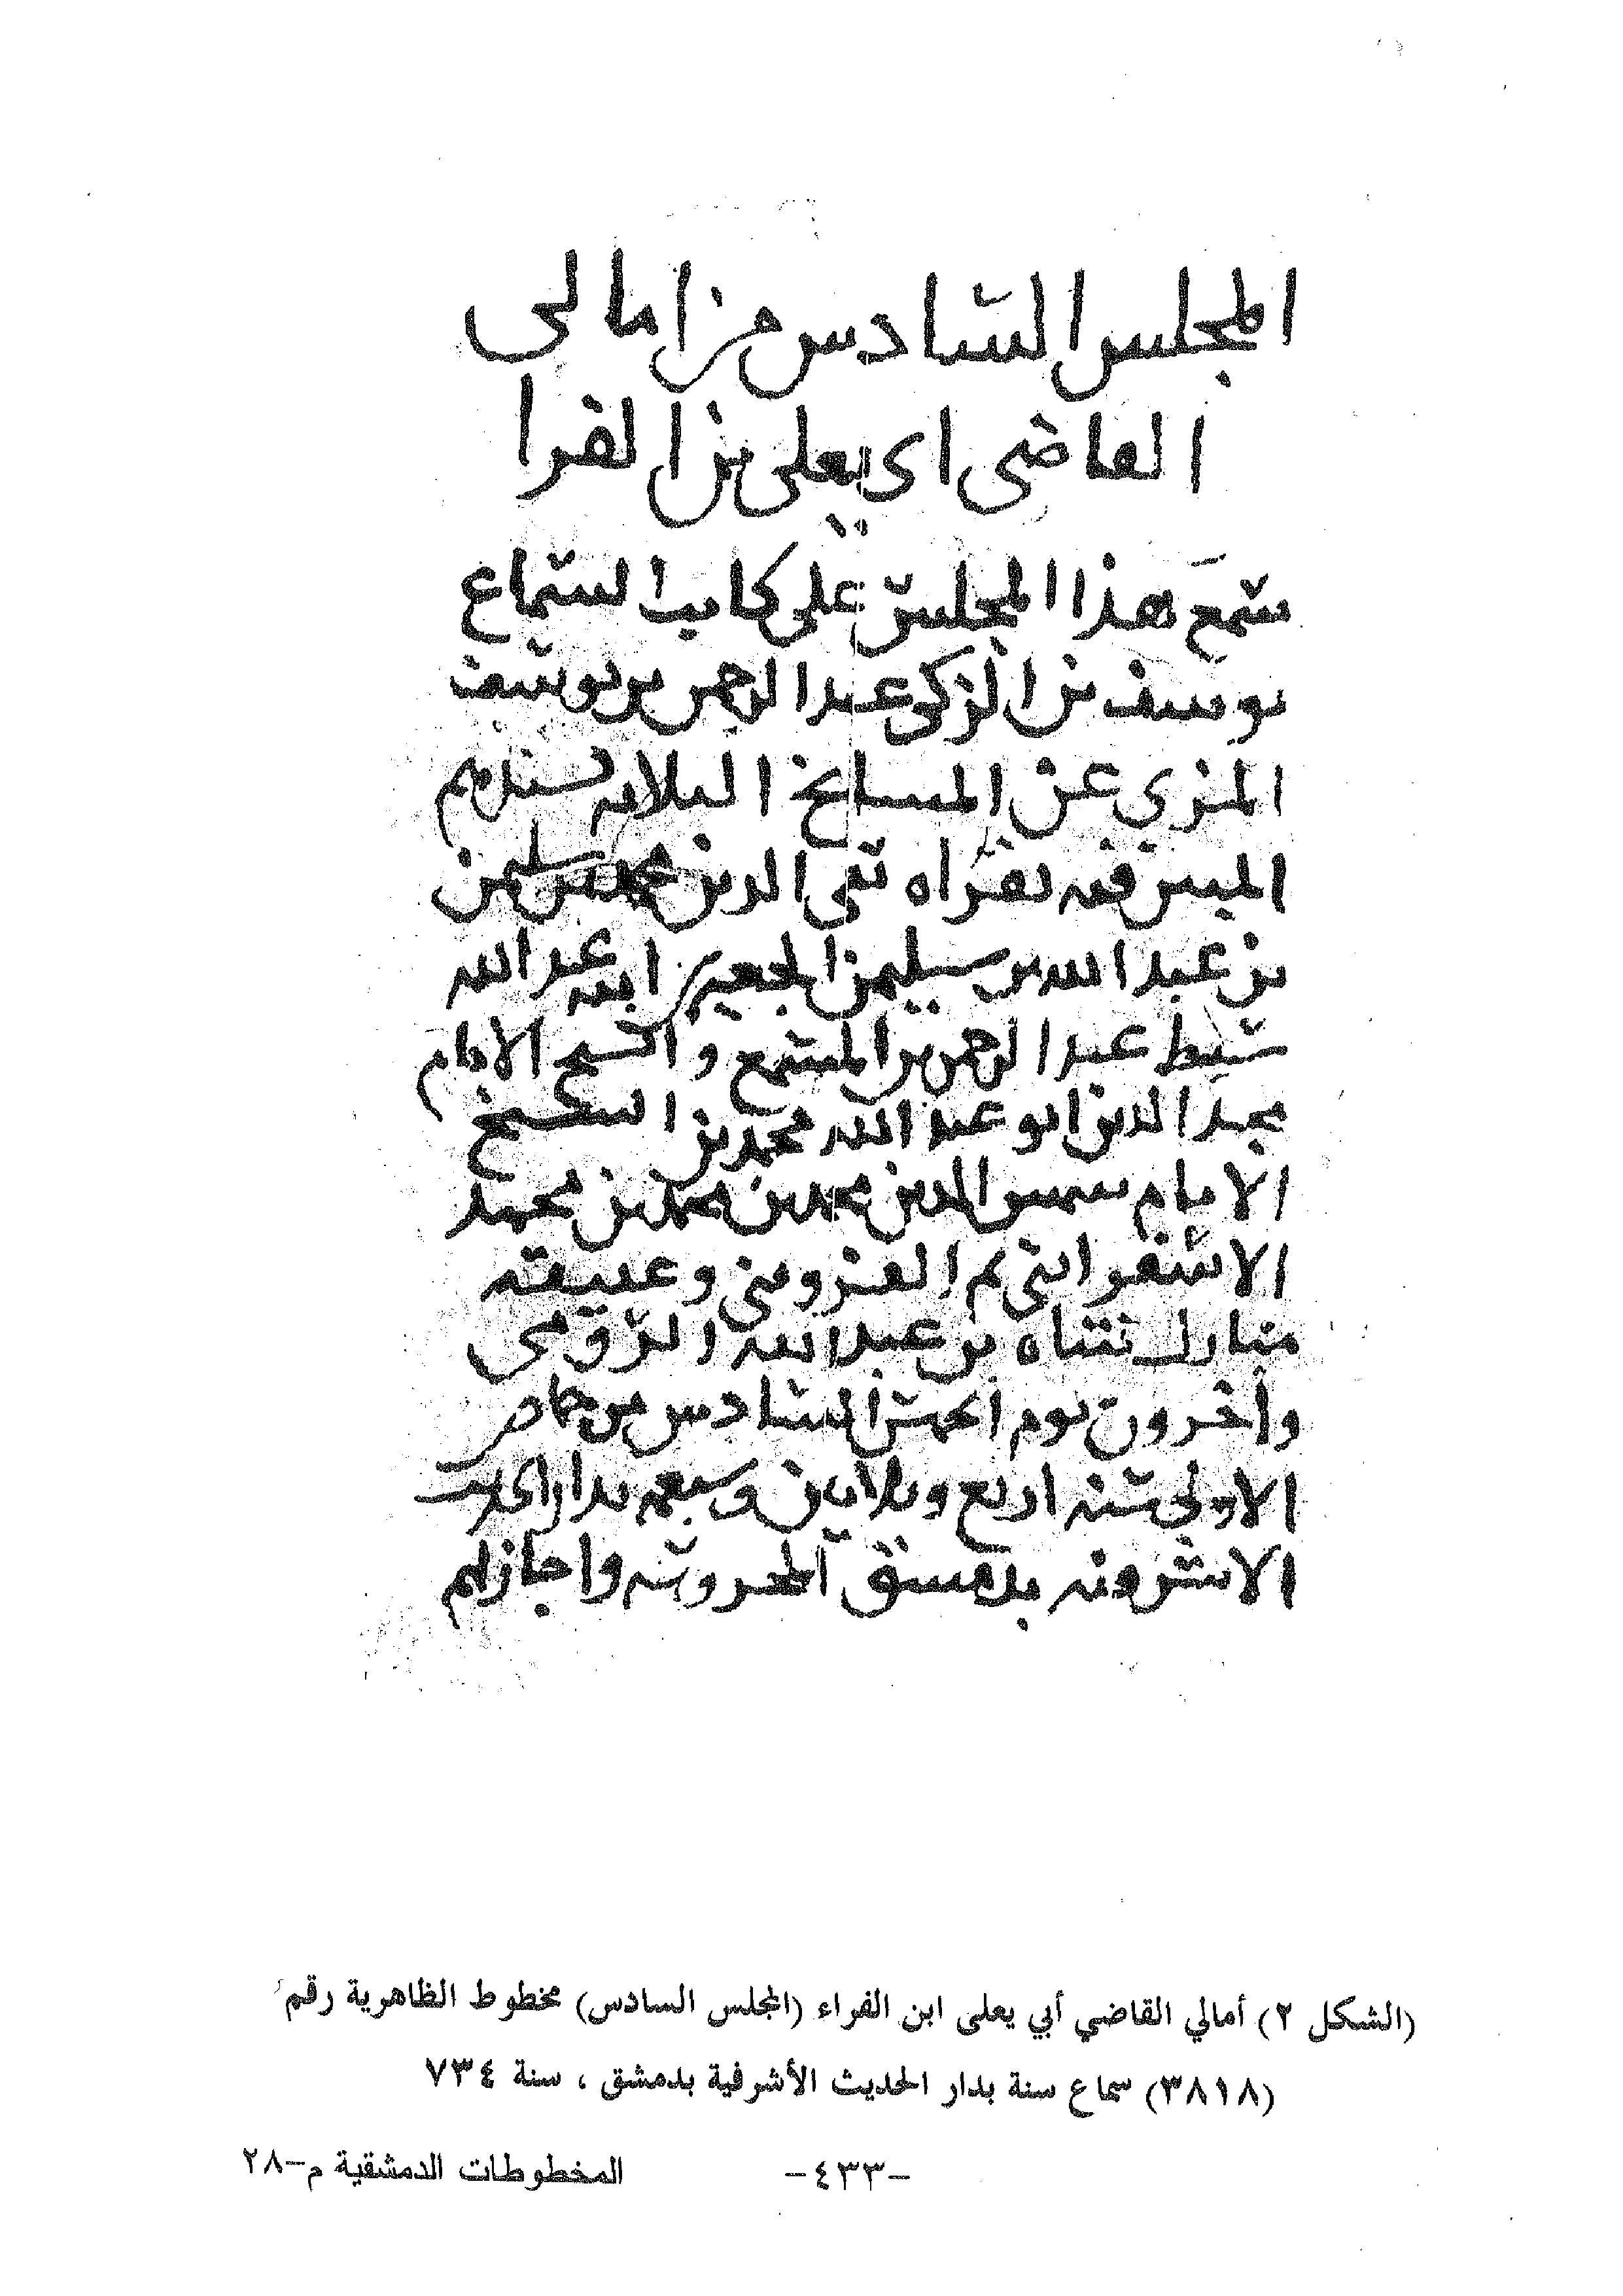 المجلس السادس من امالى
القاضى ابى يعلى بن الفرا
سمع هذا المجلس على كاتب السماع
يوسف بن الزكى عبد الرحمن بن يوسف
المزي عن المسايخ الثلاثة بسندهم
فيه بقراه تقى الدين محمد بن سليمن
بن عبد الله بن سليمن الجعبرى ابنه عبد الله
سبط عبد الرحمن المسمع والشيخ الامام
مجد الدين ابو عبد الله محمد بن الشيخ
الامام شمس الدين محمد بن محمد بن محمد
الاسفرائنى ثم القزوينى وعتيقه
مبارك بن عبد الله الرومى
واخرون يوم السادس من جمادى
الاولى سنه اربع وثلاثين وسبعمه بدار الحديث
الاشرفيه بدمشق المحروسه واجاز لهم
(الشكل ٢) أمالي القاضي أبي يعلى ابن الفراء (المجلس السادس) مخطوط الظاهرية رقم
(٣٨١٨) سماع سنة بدار الحديث الأشرفية بدمشق ، سنة ٧٣٤
-٤٣٣- المخطوطات الدمشقية م-٢٨